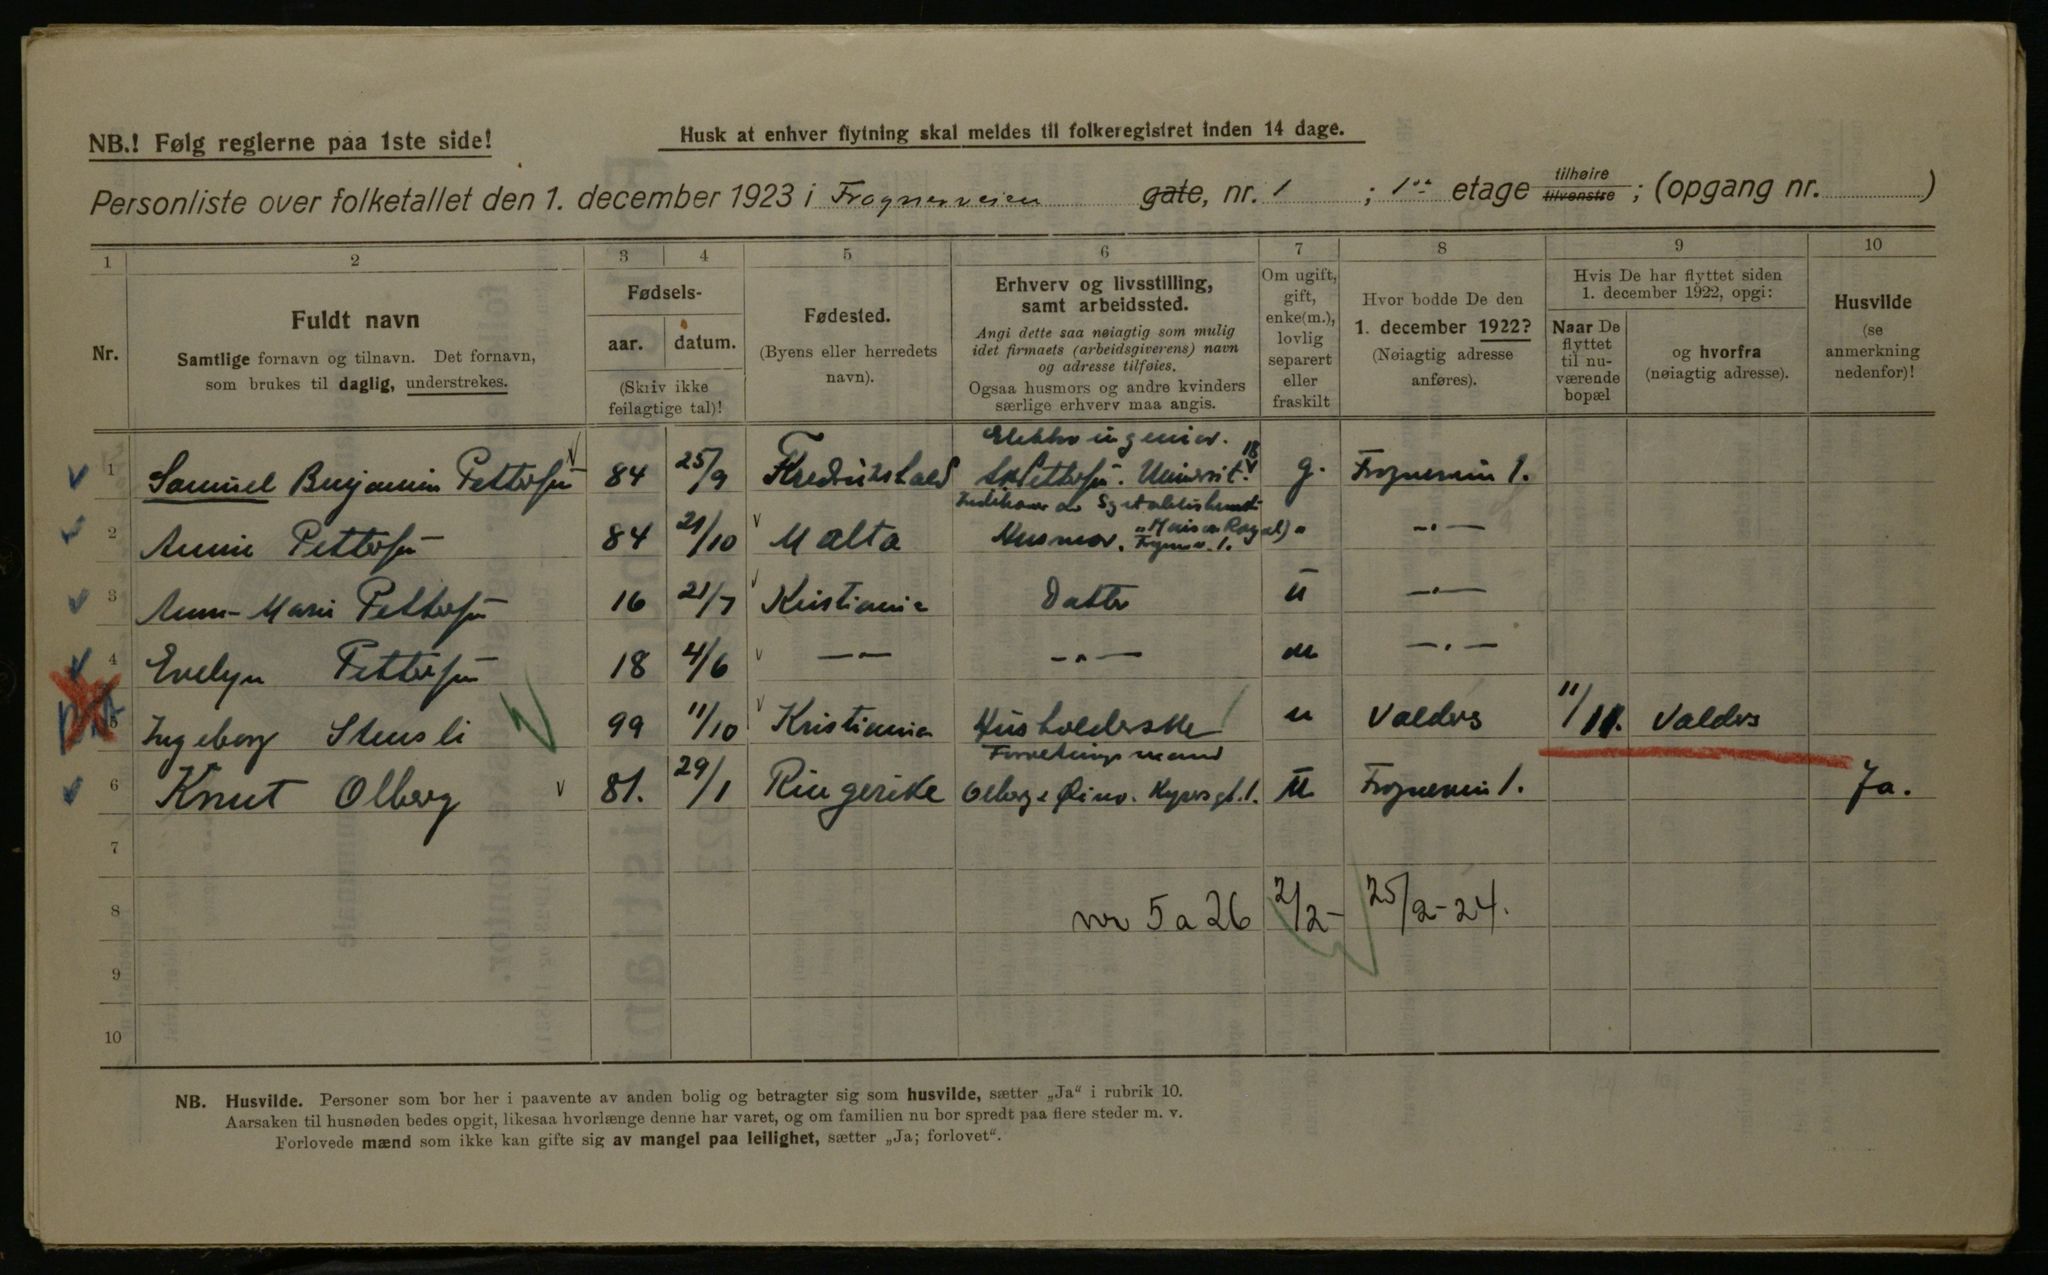 NB.! Følg reglerne paa 1ste side!
Husk at enhver flytning skal meldes til folkeregistret inden 14 dage.
Personliste over folketallet den 1. december 1923 i Frognerveien gate, nr. 1 ; 1ste etage tilhøire tilvenstre ; (opgang nr. )
1 2 3 4 5 6 7 8 9 10
Nr.
Fuldt navn
Samtlige fornavn og tilnavn. Det fornavn,
som brukes til daglig, understrekes.
Fødsels-
aar. datum.
(Skriv ikke
feilagtige tal)!
Fødested.
(Byens eller herredets
navn).
Erhverv og livsstilling,
samt arbeidssted.
Angi dette saa nøiagtig som mulig
idet firmaets (arbeidsgiverens) navn
og adresse tilføies.
Ogsaa husmors og andre kvinders
særlige erhverv maa angis.
Om ugift,
gift,
enke(m.),
lovlig
separert
eller
fraskilt
Hvor bodde De den
1. december 1922?
(Nøiagtig adresse
anføres).
Hvis De har flyttet siden
1. december 1922, opgi:
Naar De
flyttet
til nu-
værende
bopæl
og hvorfra
(nøiagtig adresse).
Husvilde
(se
anmerkning
nedenfor)!
Elektroingeniør.
1 Samuel Benjamin Pettersen 84 25/9 Fredrikshald Pettersen. Universit. 18 g. Frognervein 1.
Indehaver av Syetablissement
"Maison Royal"
2 Annie Pettersen 84 21/10 Malta Husmor. Frognerv. 1. " —"—
3 Anne-Marie Pettersen 16 21/7 Kristiania Datter u —"—
4 Evelyn Pettersen 18 4/6 —"— —"— u —"—
5 Ingeborg Stensli 99 11/10 Kristiania Husholderske u Valders 11/11. Valders
Forretningsmand
6 Knut Olberg 81. 29/1 Ringerike Olberg & Kysrsgt. 1. u Frognervein 1. Ja.
7
8 nr 5 a 26 2/2- 25/2-24.
9
10
NB. Husvilde. Personer som bor her i paavente av anden bolig og betragter sig som husvilde, sætter „Ja“ i rubrik 10.
Aarsaken til husnøden bedes opgit, likesaa hvorlænge denne har varet, og om familien nu bor spredt paa flere steder m. v.
Forlovede mænd som ikke kan gifte sig av mangel paa leilighet, sætter „Ja; forlovet“.